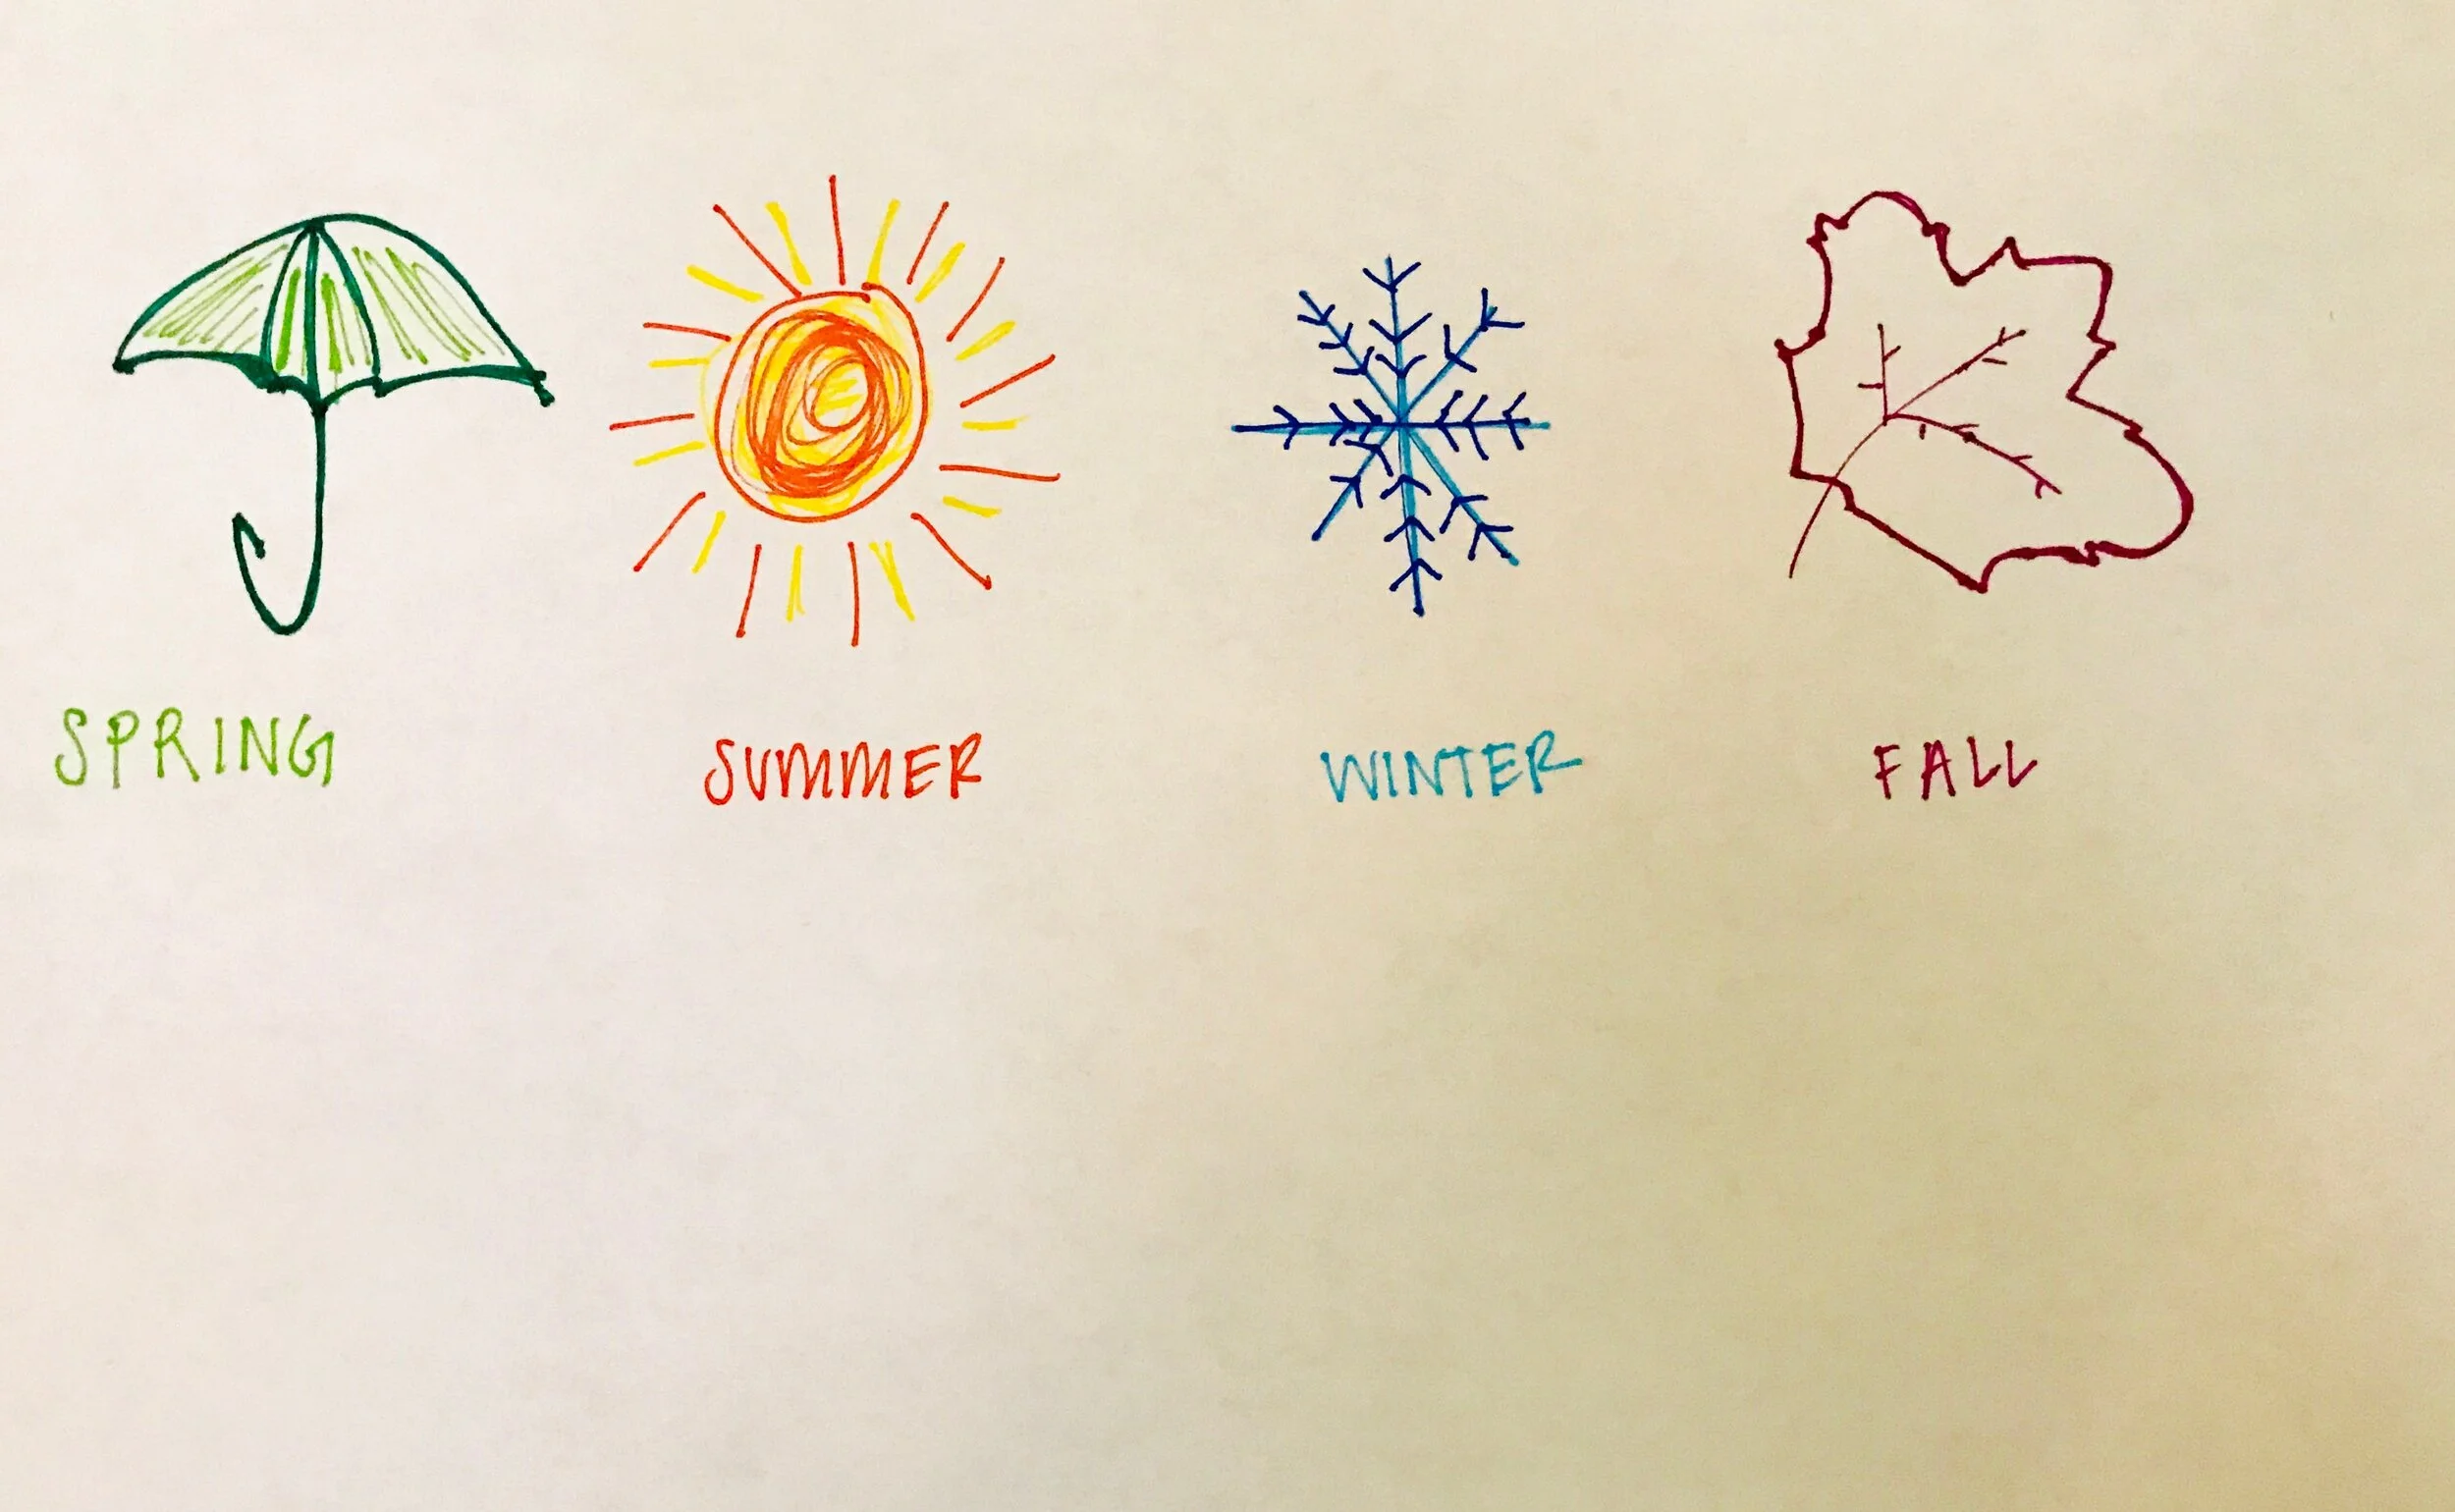 SPRING SUMMER WINTER FALL